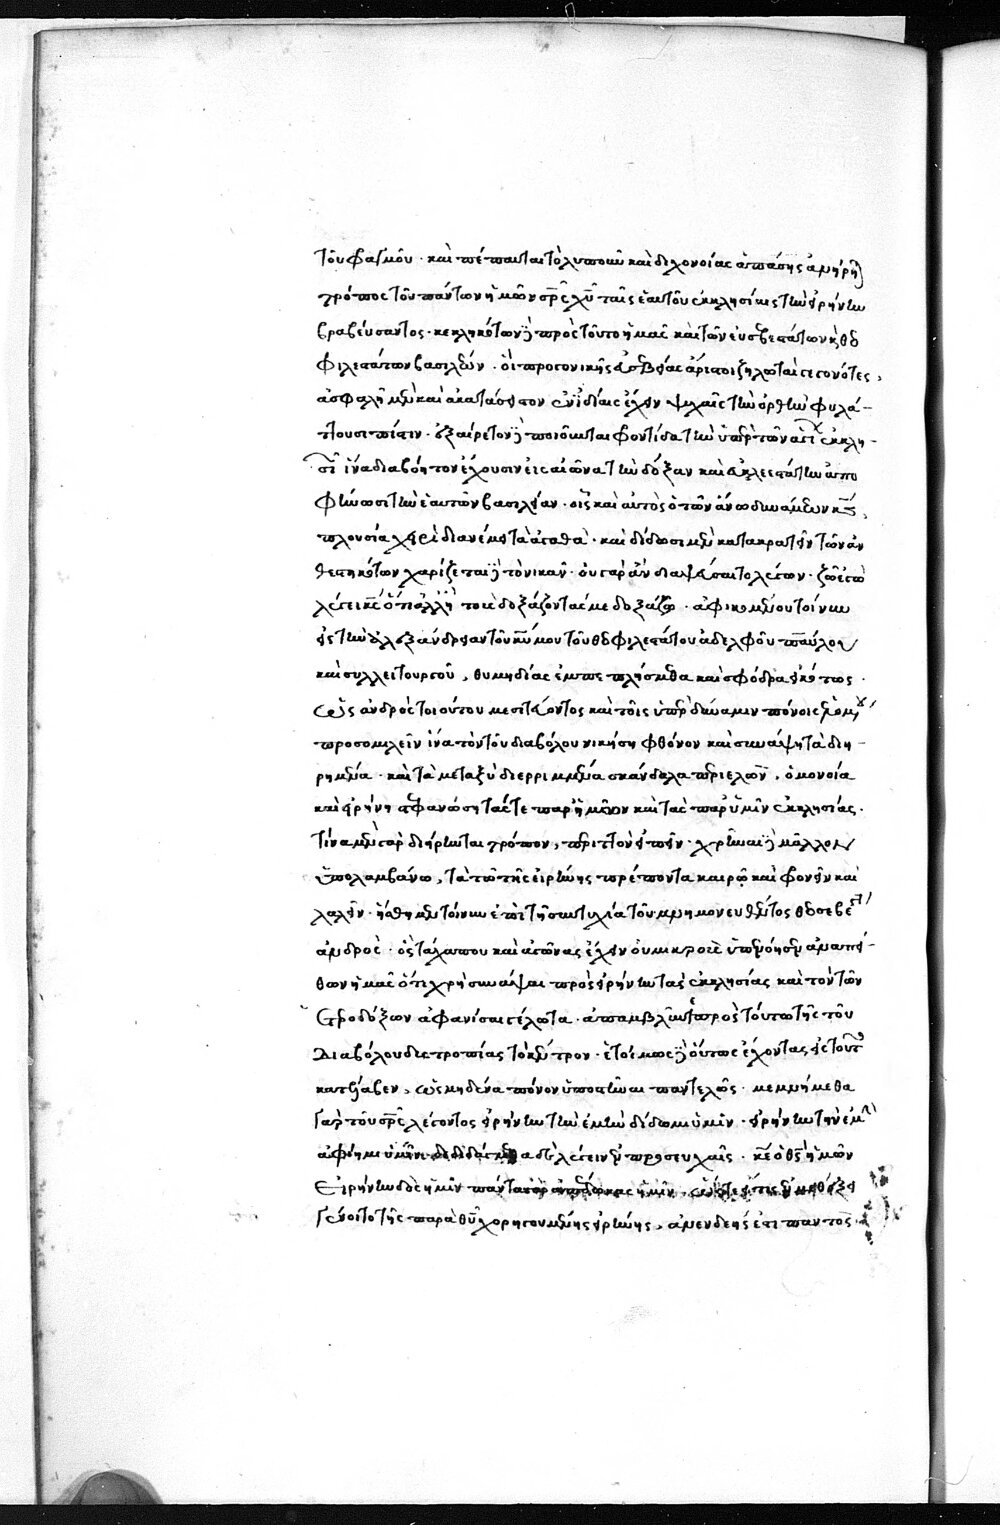 τοῦ φραγμοῦ · καὶ πέπαυται τὸ λυποῦν καὶ διχονοίας ἁπάσης ἀνῃρέθη
τρόπος τοῦ πάντων ἡμῶν σρς χυ ταῖς ἑαυτοῦ ἐκκλησίαις τὴν εἰρήνην
βραβεύσαντος · κεκληκότων δὲ πρὸς τοῦτο ἡμᾶς καὶ τῶν εὐσεβεστάτων κ θεο
φιλεστάτων βασιλέων · οἳ προγονικῆς εὐσεβείας ἄριστοι ζηλωταὶ γεγονότες,
ἀσφαλῆ μὲν καὶ ἀκατάσειστον ἐν ἰδίαις ἔχειν ψυχαῖς τὴν ὀρθὴν φυλά-
ττουσι πίστιν · ἐξαίρετον δὲ ποιοῦνται φροντίδα τὴν ὑπὲρ τῶν ἁγίων ἐκκλη-
σιῶν ἵνα διαβόητον ἔχουσιν εἰς αἰῶνα τὴν δόξαν καὶ εὐκλεεστάτην ἀπο
φήνωσι τὴν ἑαυτῶν βασιλείαν · οἷς καὶ αὐτὸς ὁ τῶν ἄνω δυνάμεων κς,
πλουσίᾳ χειρὶ διανέμει τὰ ἀγαθά · καὶ δίδωσι μὲν κατακρατεῖν τῶν ἀν
θεστηκότων χαρίζεται δὲ τὸ νικᾶν · οὐ γὰρ ἂν διαψεύσαιτο λέγων · ζῶ ἐγὼ
λέγει κς ὅτι ἀλλ' ἢ τοὺς δοξάζοντάς με δοξάζω · ἀφικομένου τοίνυν
εἰς τὴν ἀλεξάνδρειαν τοῦ κυρίου μου τοῦ θεοφιλεστάτου ἀδελφοῦ παύλου
καὶ συλλειτουργοῦ, θυμηδίας ἐμπεπλήσμεθα καὶ σφόδρα εἰκότως ·
ὡς ἀνδρὸς τοιούτου μεσιτεύοντος καὶ τοῖς ὑπὲρ δύναμιν πόνοις ἑλομένου
προσομιλεῖν ἵνα τὸν τοῦ διαβόλου νικήσῃ φθόνον καὶ συνάψῃ τὰ διῃ-
ρημένα · καὶ τὰ μεταξὺ διερριμμένα σκάνδαλα περιελὼν, ὁμονοίᾳ
καὶ εἰρήνῃ στεφανώσῃ τάς τε παρ' ἡμῖν καὶ τὰς παρ' ὑμῖν ἐκκλησίας ·
τίνα μὲν γὰρ διῄρηνται τρόπον, περιττὸν εἰπεῖν · χρῆναι δὲ μᾶλλον
ὑπολαμβάνω, τὰ τῷ τῆς εἰρήνης πρέποντα καιρῷ καὶ φρονεῖν καὶ
λαλεῖν · ἥσθημεν τοίνυν ἐπὶ τῇ συντυχίᾳ τοῦ μνημονευθέντος θεοσεβεστάτου
ἀνδρὸς · ὃς τάχα που καὶ ἀγῶνας ἕξειν οὐ μικροὺς ὑπενόησεν ἀναπεί-
θων ἡμᾶς ὅτι χρὴ συνάψαι πρὸς εἰρήνην τὰς ἐκκλησίας καὶ τὸν τῶν
ἑτεροδόξων ἀφανίσαι γέλωτα · ἀπαμβλῦναί τε πρὸς τούτῳ τῆς τοῦ
διαβόλου δυστροπίας τὸ κέντρον · ἑτοίμως δὲ οὕτως ἔχοντας εἰς τοῦτο
κατέλαβεν, ὡς μηδένα πόνον ὑποστῆναι παντελῶς · μεμνήμεθα
γὰρ τοῦ σρς λέγοντος εἰρήνην τὴν ἐμὴν δίδωμι ὑμῖν · εἰρήνην τὴν ἐμὴν
ἀφίημι ὑμῖν · δεδιδάγμεθα δὲ λέγειν ἐν προσευχαῖς · κε ὁ θς ἡμῶν
εἰρήνην δὸς ἡμῖν πάντα γὰρ ἀπέδωκας ἡμῖν · ὥστε εἴ τις ἐν μεθέξει
γένοιτο τῆς παρὰ θυ χορηγουμένης εἰρήνης, ἀνενδεὴς ἔσται παντὸς